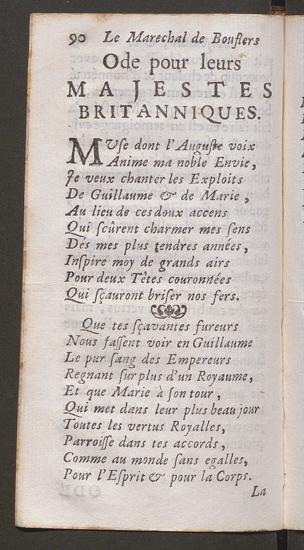 90 Le Marechal de Bouflers
Ode pour leurs
MAJESTES
BRITANNIQUES.
MUse dont l'Auguste voix
Anime ma noble Envie,
Je veux chanter les Exploits
De Guillaume & de Marie,
Au lieu de ces doux accens
Qui sçûrent charmer mes sens
Dés mes plus tendres années,
Inspire moy de grands airs
Pour deux Têtes couronnées
Qui sçauront briser nos fers.
Que tes sçavantes fureurs
Nous fassent voir en Guillaume
Le pur sang des Empereurs
Regnant sur plus d'un Royaume,
Et que Marie à son tour,
Qui met dans leur plus beau jour
Toutes les vertus Royalles,
Parroisse dans tes accords,
Comme au monde sans egalles,
Pour l'Esprit & pour la Corps.
La